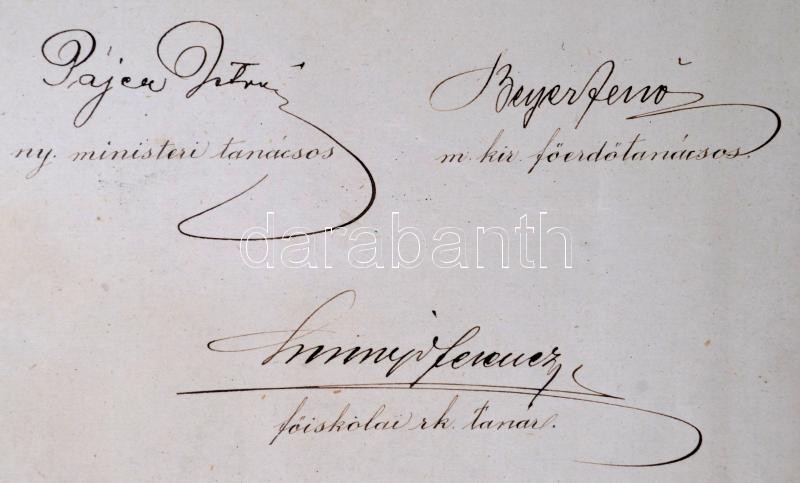 Pájer István
ny. ministeri tanácsos
Beyer Jenő
m. kir. főerdőtanácsos.
darabanth
Ferencz
főiskolai rk. tanár.